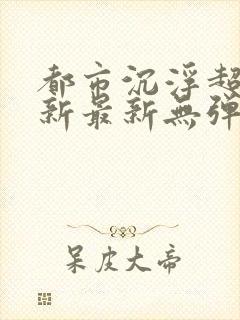 都市沉浮超
新最新無弹
呆皮大帝